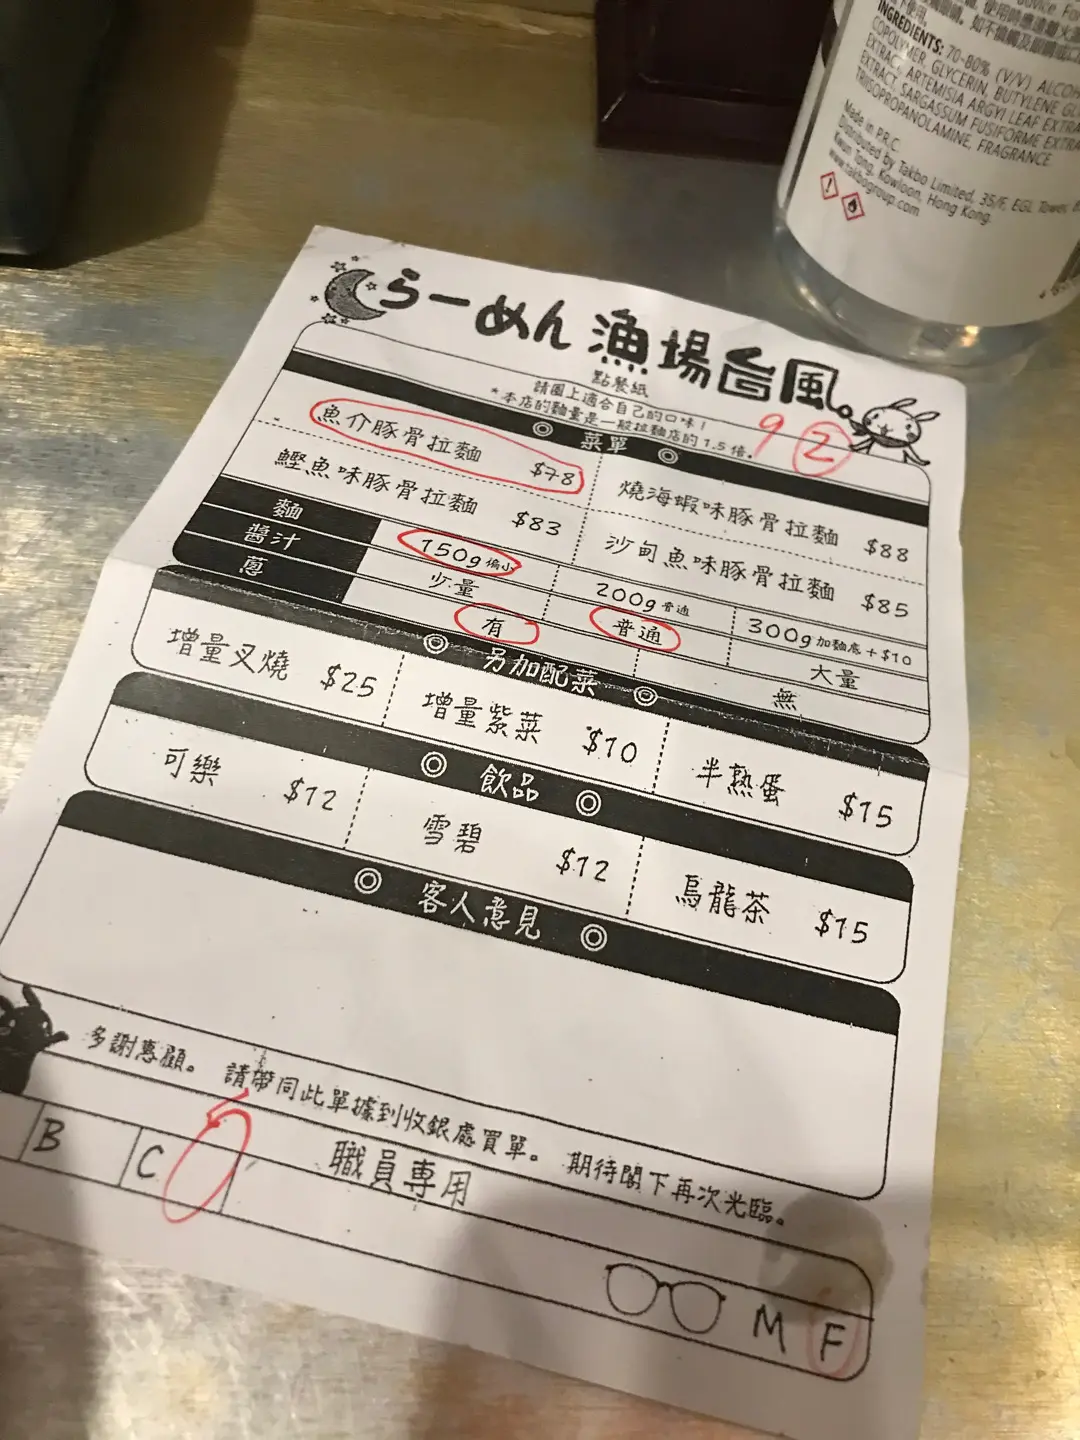 使用時應遠離火源
INGREDIENTS: 70-80% (V/V) ALCOHOL
COPOLYMER, GLYCERIN, BUTYLENE GL
EXTRACT, ARTEMISIA ARGYI LEAF EXTRA
EXTRACT, SARGASSUM FUSIFORME EXTRA
TRIISOPROPANOLAMINE, FRAGRANCE
Made in P.R.C.
Distributed by Takbo Limited, 35/F, EGL Tower,
Kwun Tong, Kowloon, Hong Kong.
www.takbogroup.com
らーめん 漁場台風。
點餐紙
請圈上適合自己的口味!
*本店的麵量是一般拉麵店的1.5倍。
9 2
◎ 菜單 ◎
魚介豚骨拉麵 $78
燒海蝦味豚骨拉麵 $88
鰹魚味豚骨拉麵 $83
沙甸魚味豚骨拉麵 $85
麵 150g偏小 200g普通 300g加麵底+$10
醬汁 少量 普通 大量
蔥 有 無
◎ 另加配菜 ◎
增量叉燒 $25
增量紫菜 $10
半熟蛋 $15
◎ 飲品 ◎
可樂 $12
雪碧 $12
烏龍茶 $15
◎ 客人意見 ◎
多謝惠顧。 請帶同此單據到收銀處買單。 期待閣下再次光臨。
職員專用
B C
M F